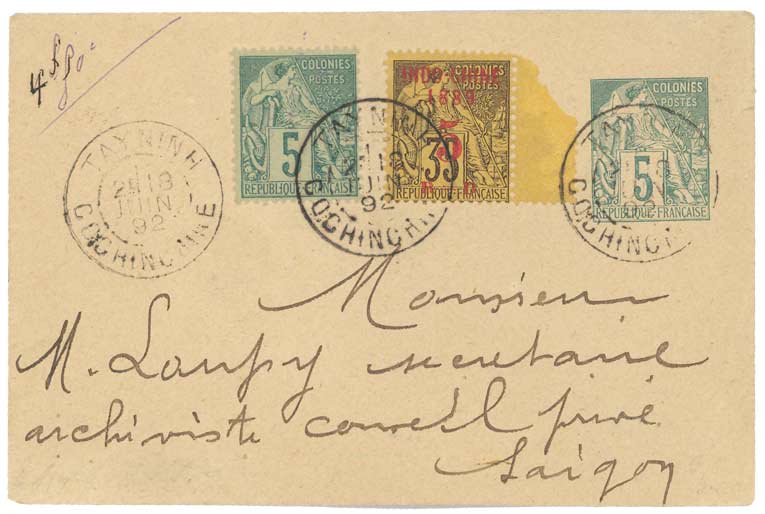 COLONIES
POSTES
5
RÉPUBLIQUE FRANÇAISE
COLONIES
POSTES
INDO-CHINE
1889
5
35
R D
RÉPUBLIQUE FRANÇAISE
COLONIES
POSTES
5
RÉPUBLIQUE FRANÇAISE
TAY NINH
2E 18
JUIN
92
COCHINCHINE
TAY NINH
2E 18
JUIN
92
COCHINCHINE
Monsieur
M. Loupy secretaire
archiviste conseil privé
Saigon